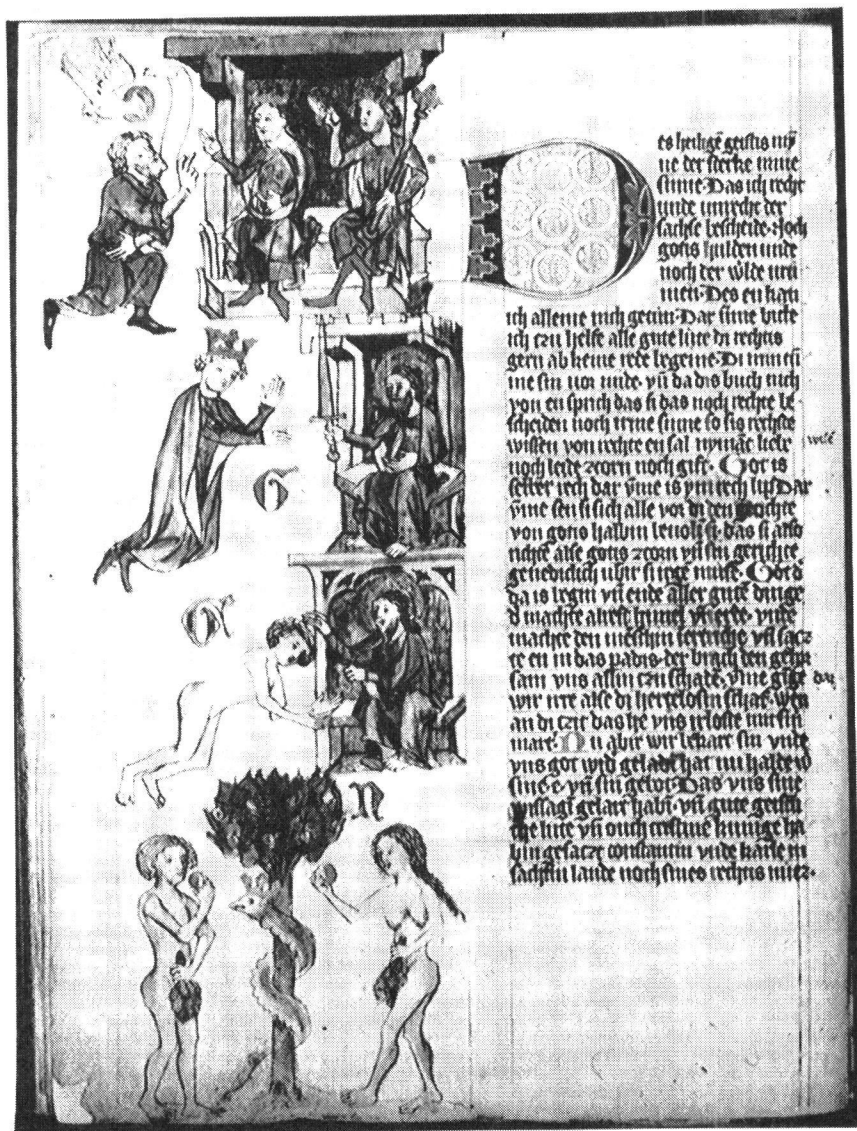 D
es heilgē geistis mȳ
ne der sterke mine
sinne. Das ich recht
unde unrecht der
sachse bescheide. Noch
gotis hulden unde
noch der w̄lde vrū
men. Des en kan
ich alleine nich getun. Dar ūme bitte
ich czu helfe alle gute lute di rechtis
gern ab keine rede begeine. Di
me sin vor unde. vn̄ da dis buch nich
von en sprich das si das noch rechte be
scheiden noch irme sinne so sis rechste
wissen von rechte en sal nymāt liebe
noch leide zcorn noch gift. Got is
selber rech dar v̄me is ym rech lip Dar
v̄me sen si sich alle vor di den gerichte
von gotis halbin bevoln si. das si also
richtē alse gotis zcorn vn̄ sin gerichte
genediclich ubir si irge muse. Got d
da is begin vn̄ ende aller gute dinge
d machte alrest himel vn̄ erde. vnde
machte den mēschin vn̄ sacz
te en in das padis. der brach den gehor
sam vns allin czu schadē. v̄me gīge
wir irre alse di hertelosin schaf. wen
an di czit das he vns irloste mit sin
mart. Nu abir wir bekart sin vnde
vns got wid geladē hat nu halde w
sine e. vn̄ sin gebot. Das vns sine
wissagē gelart habī. vn̄ gute geistli
che lute vn̄ ouch cristine kunige ha
bin gesatzt constantin vnde karle in
sachsin lande noch sines rechtis
G
G
N